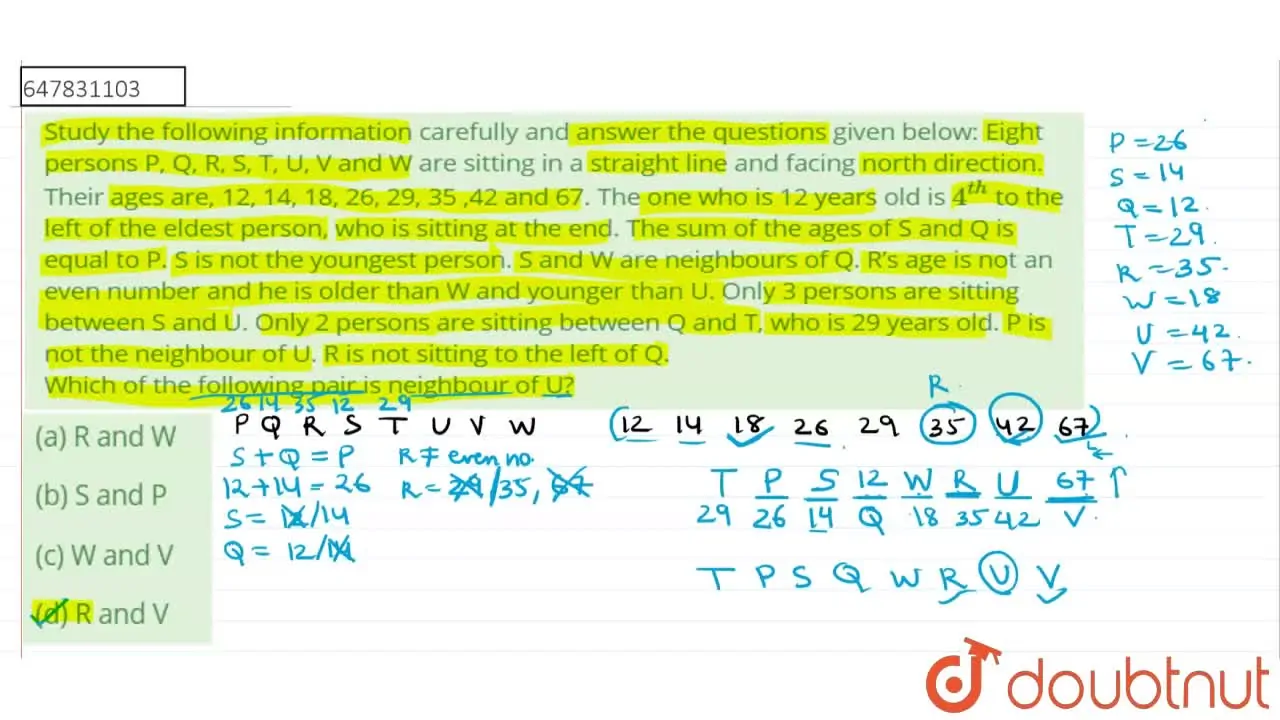 647831103
Study the following information carefully and answer the questions given below: Eight
persons P, Q, R, S, T, U, V and W are sitting in a straight line and facing north direction.
Their ages are, 12, 14, 18, 26, 29, 35 ,42 and 67. The one who is 12 years old is 4th to the
left of the eldest person, who is sitting at the end. The sum of the ages of S and Q is
equal to P. S is not the youngest person. S and W are neighbours of Q. R's age is not an
even number and he is older than W and younger than U. Only 3 persons are sitting
between S and U. Only 2 persons are sitting between Q and T, who is 29 years old. P is
not the neighbour of U. R is not sitting to the left of Q.
Which of the following pair is neighbour of U?
P = 26
S = 14
Q = 12.
T = 29.
R = 35.
W = 18
U = 42.
V = 67.
(a) R and W
(b) S and P
(c) W and V
(d) R and V
26 14 35 12 29
P Q R S T U V W
S + Q = P R ≠ even no.
12 + 14 = 26 R = 29/35, 67
S = 12/14
Q = 12/14
R
12 14 18 26 29 35 42 67
T P S 12 W R U 67 ↑
29 26 14 Q 18 35 42 V
T P S Q W R U V
doubtnut